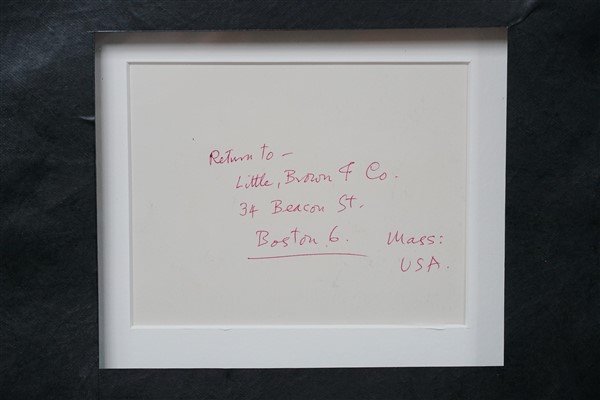 Return to —
Little, Brown & Co.
34 Beacon St.
Boston 6. Mass:
USA.